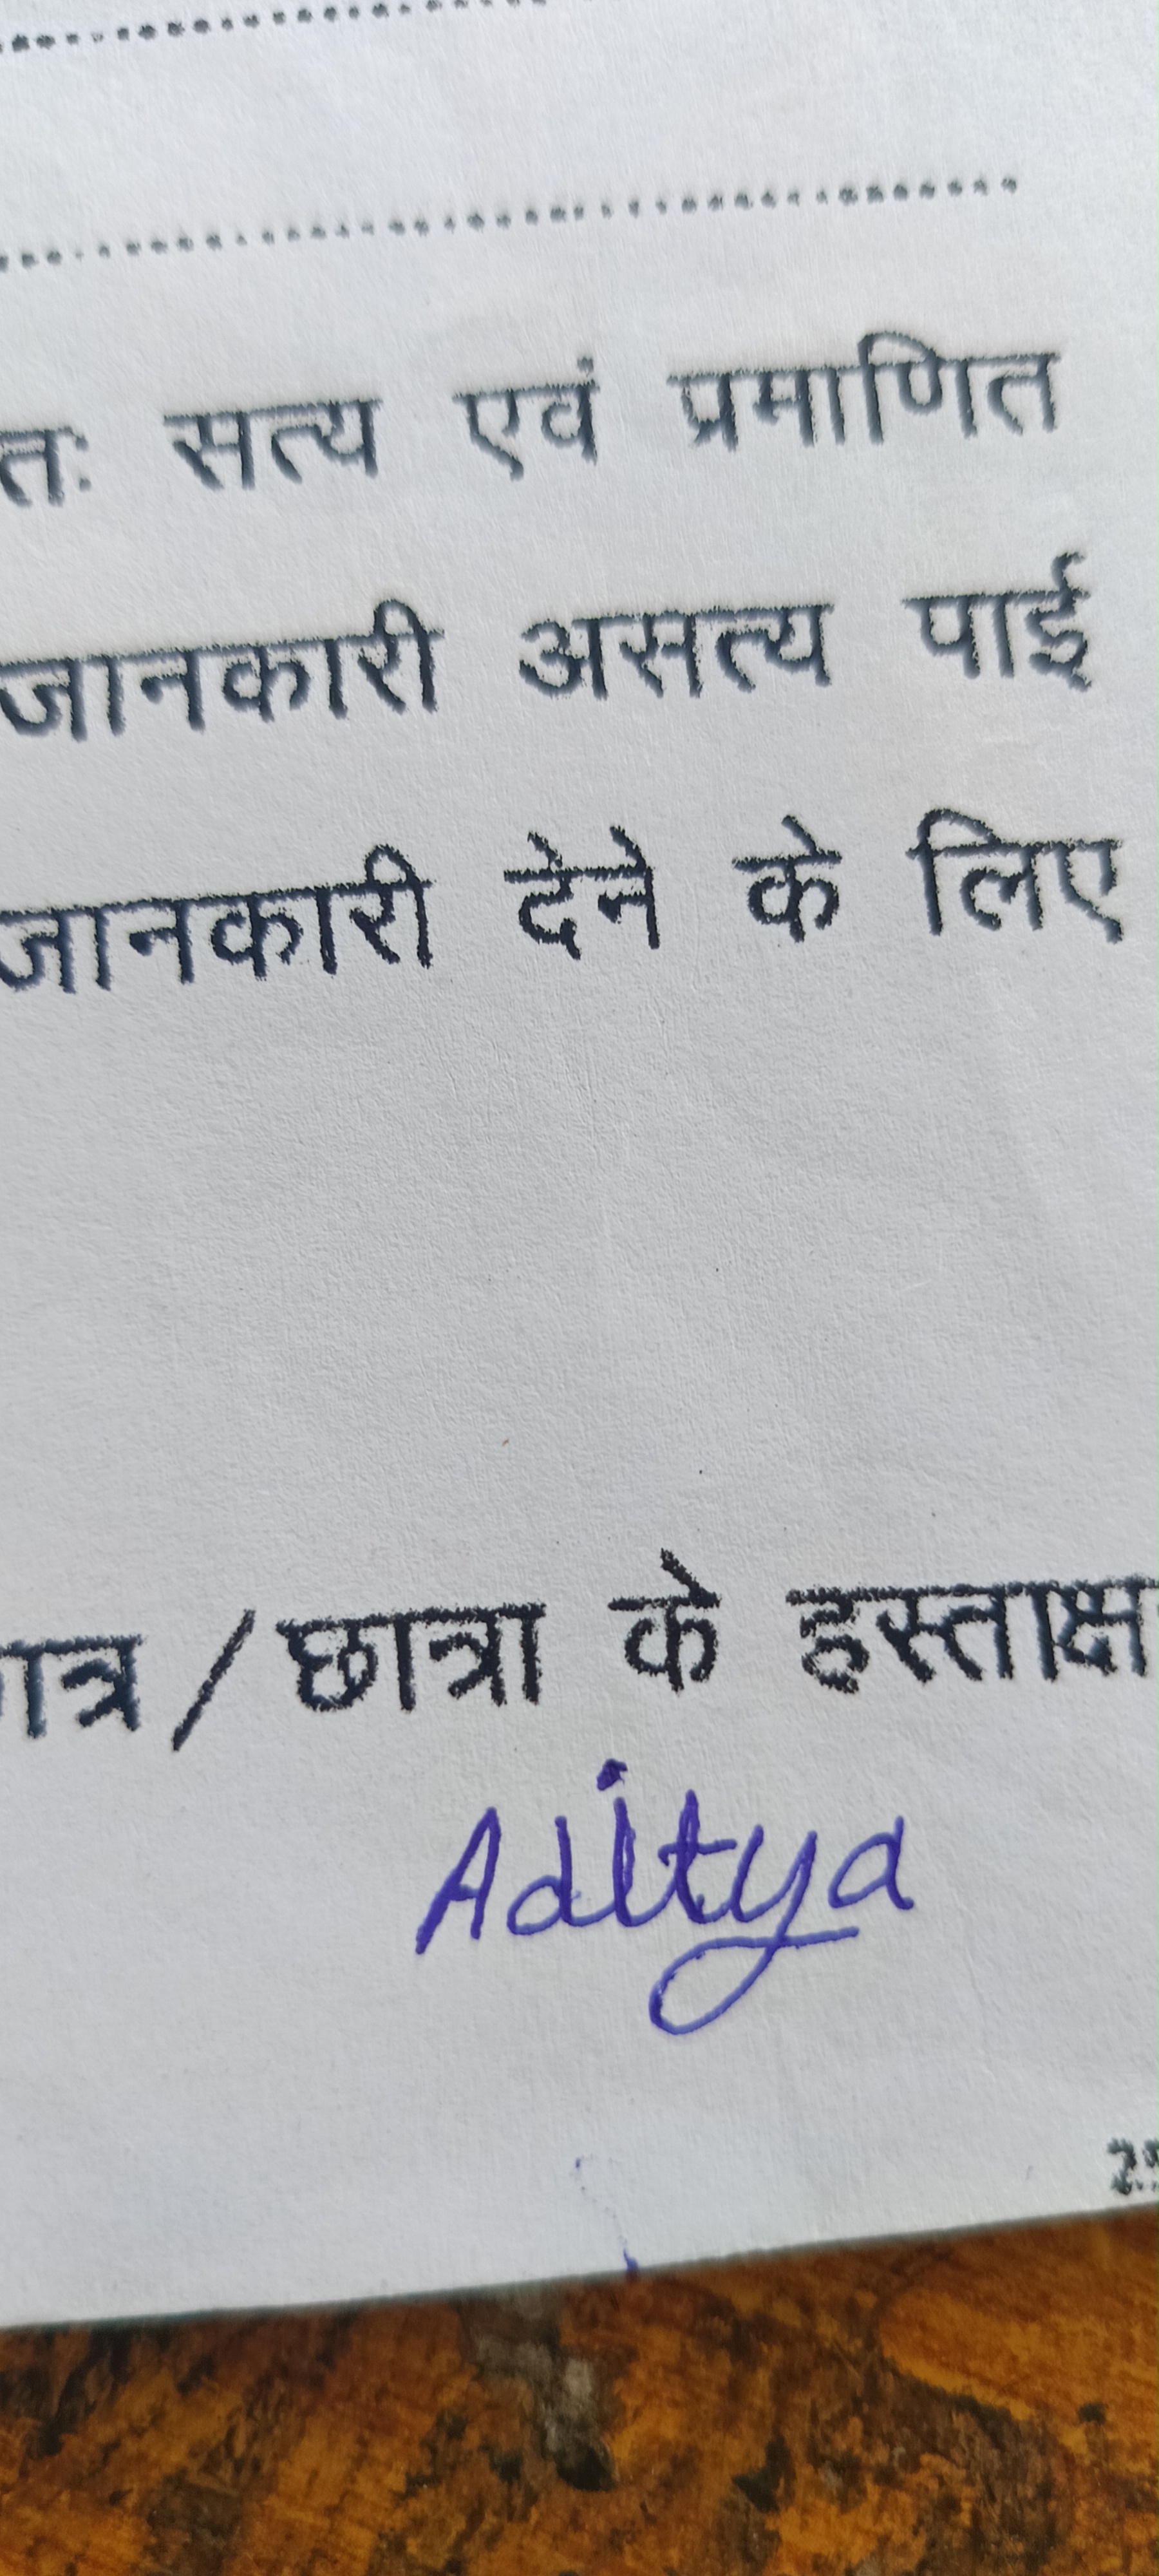 तः सत्य एवं प्रमाणित
जानकारी असत्य पाई
जानकारी देने के लिए
ात्र/छात्रा के हस्ताक्ष
Aditya